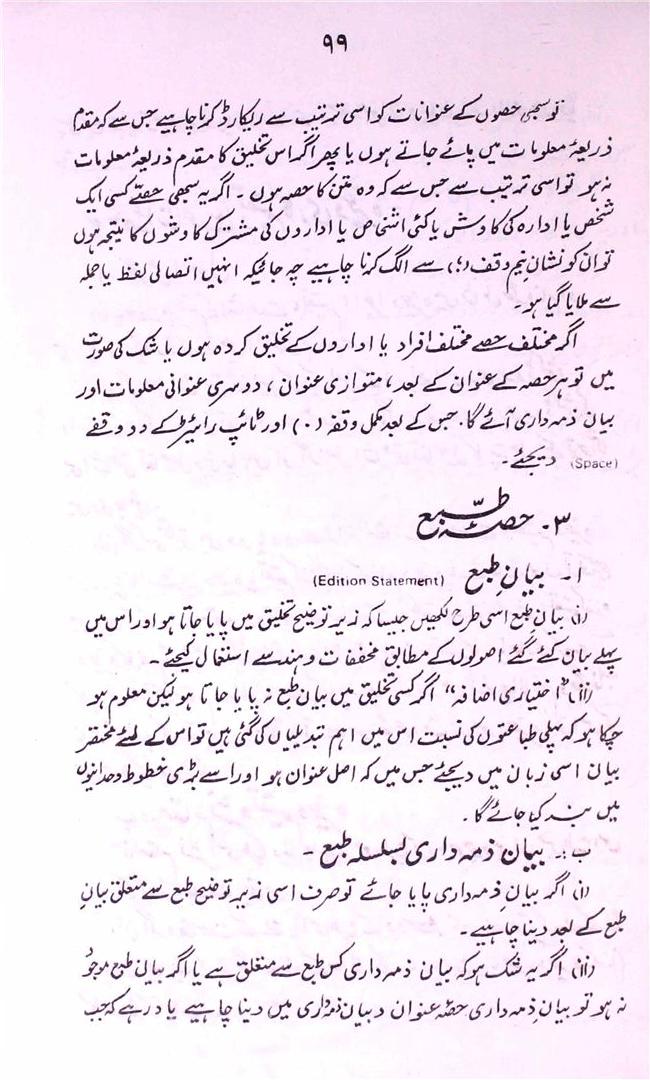 ۹۹
تو سبھی حصوں کے عنوانات کو اسی ترتیب سے ریکارڈ کرنا چاہیے جس سے کہ مقدم
ذریعۂ معلومات میں پائے جاتے ہوں یا پھر اگر اس تخلیق کا مقدم ذریعۂ معلومات
نہ ہو تو اسی ترتیب سے جس سے کہ وہ متن کا حصہ ہوں ۔ اگر یہ سبھی حصے کسی ایک
شخص یا ادارہ کی کاوش یا کئی اشخاص یا اداروں کی مشترک کاوشوں کا نتیجہ ہوں
تو ان کو نشان نیم وقف (؛) سے الگ کرنا چاہیے چہ جائیکہ انہیں اتصالی لفظ یا جملہ
سے ملایا گیا ہو ۔
اگر مختلف حصے مختلف افراد یا اداروں کے تخلیق کردہ ہوں یا شک کی صورت
میں تو ہر حصہ کے عنوان کے بعد ، متوازی عنوان ، دوسری عنوانی معلومات اور
بیان ذمہ داری آئے گا۔ جس کے بعد مکمل وقفہ (۰) اور ٹائپ رائیٹر کے دو وقفے
(Space) دیجئے ۔
۳۔ حصۂ طبع
۱۔ بیانِ طبع (Edition Statement)
(i) بیان طبع اسی طرح لکھیں جیسا کہ زیر توضیح تخلیق میں پایا جاتا ہو اور اس میں
پہلے بیان کئے گئے اصولوں کے مطابق مخففات و ہندسے استعمال کیجئے ۔
(ii) "اختیاری اضافہ" اگر کسی تخلیق میں بیان طبع نہ پایا جاتا ہو لیکن معلوم ہو
چکا ہو کہ پہلی طباعتوں کی نسبت اس میں اہم تبدیلیاں کی گئی ہیں تو اس کے لئے مختصر
بیان اسی زبان میں دیجئے جس میں کہ اصل عنوان ہو اور اسے بڑی خطوط وحدانیوں
میں بند کیا جائے گا ۔
ب :۔ بیان ذمہ داری بسلسلہ طبع ۔
(i) اگر بیانِ ذمہ داری پایا جائے تو صرف اسی زیر توضیح طبع سے متعلق بیانِ
طبع کے بعد دینا چاہیے ۔
(ii) اگر یہ شک ہو کہ بیان ذمہ داری کس طبع سے متعلق ہے یا اگر بیان طبع موجود
نہ ہو تو بیانِ ذمہ داری حصۂ عنوان و بیان ذمہ داری میں دینا چاہیے یاد رہے کہ جب